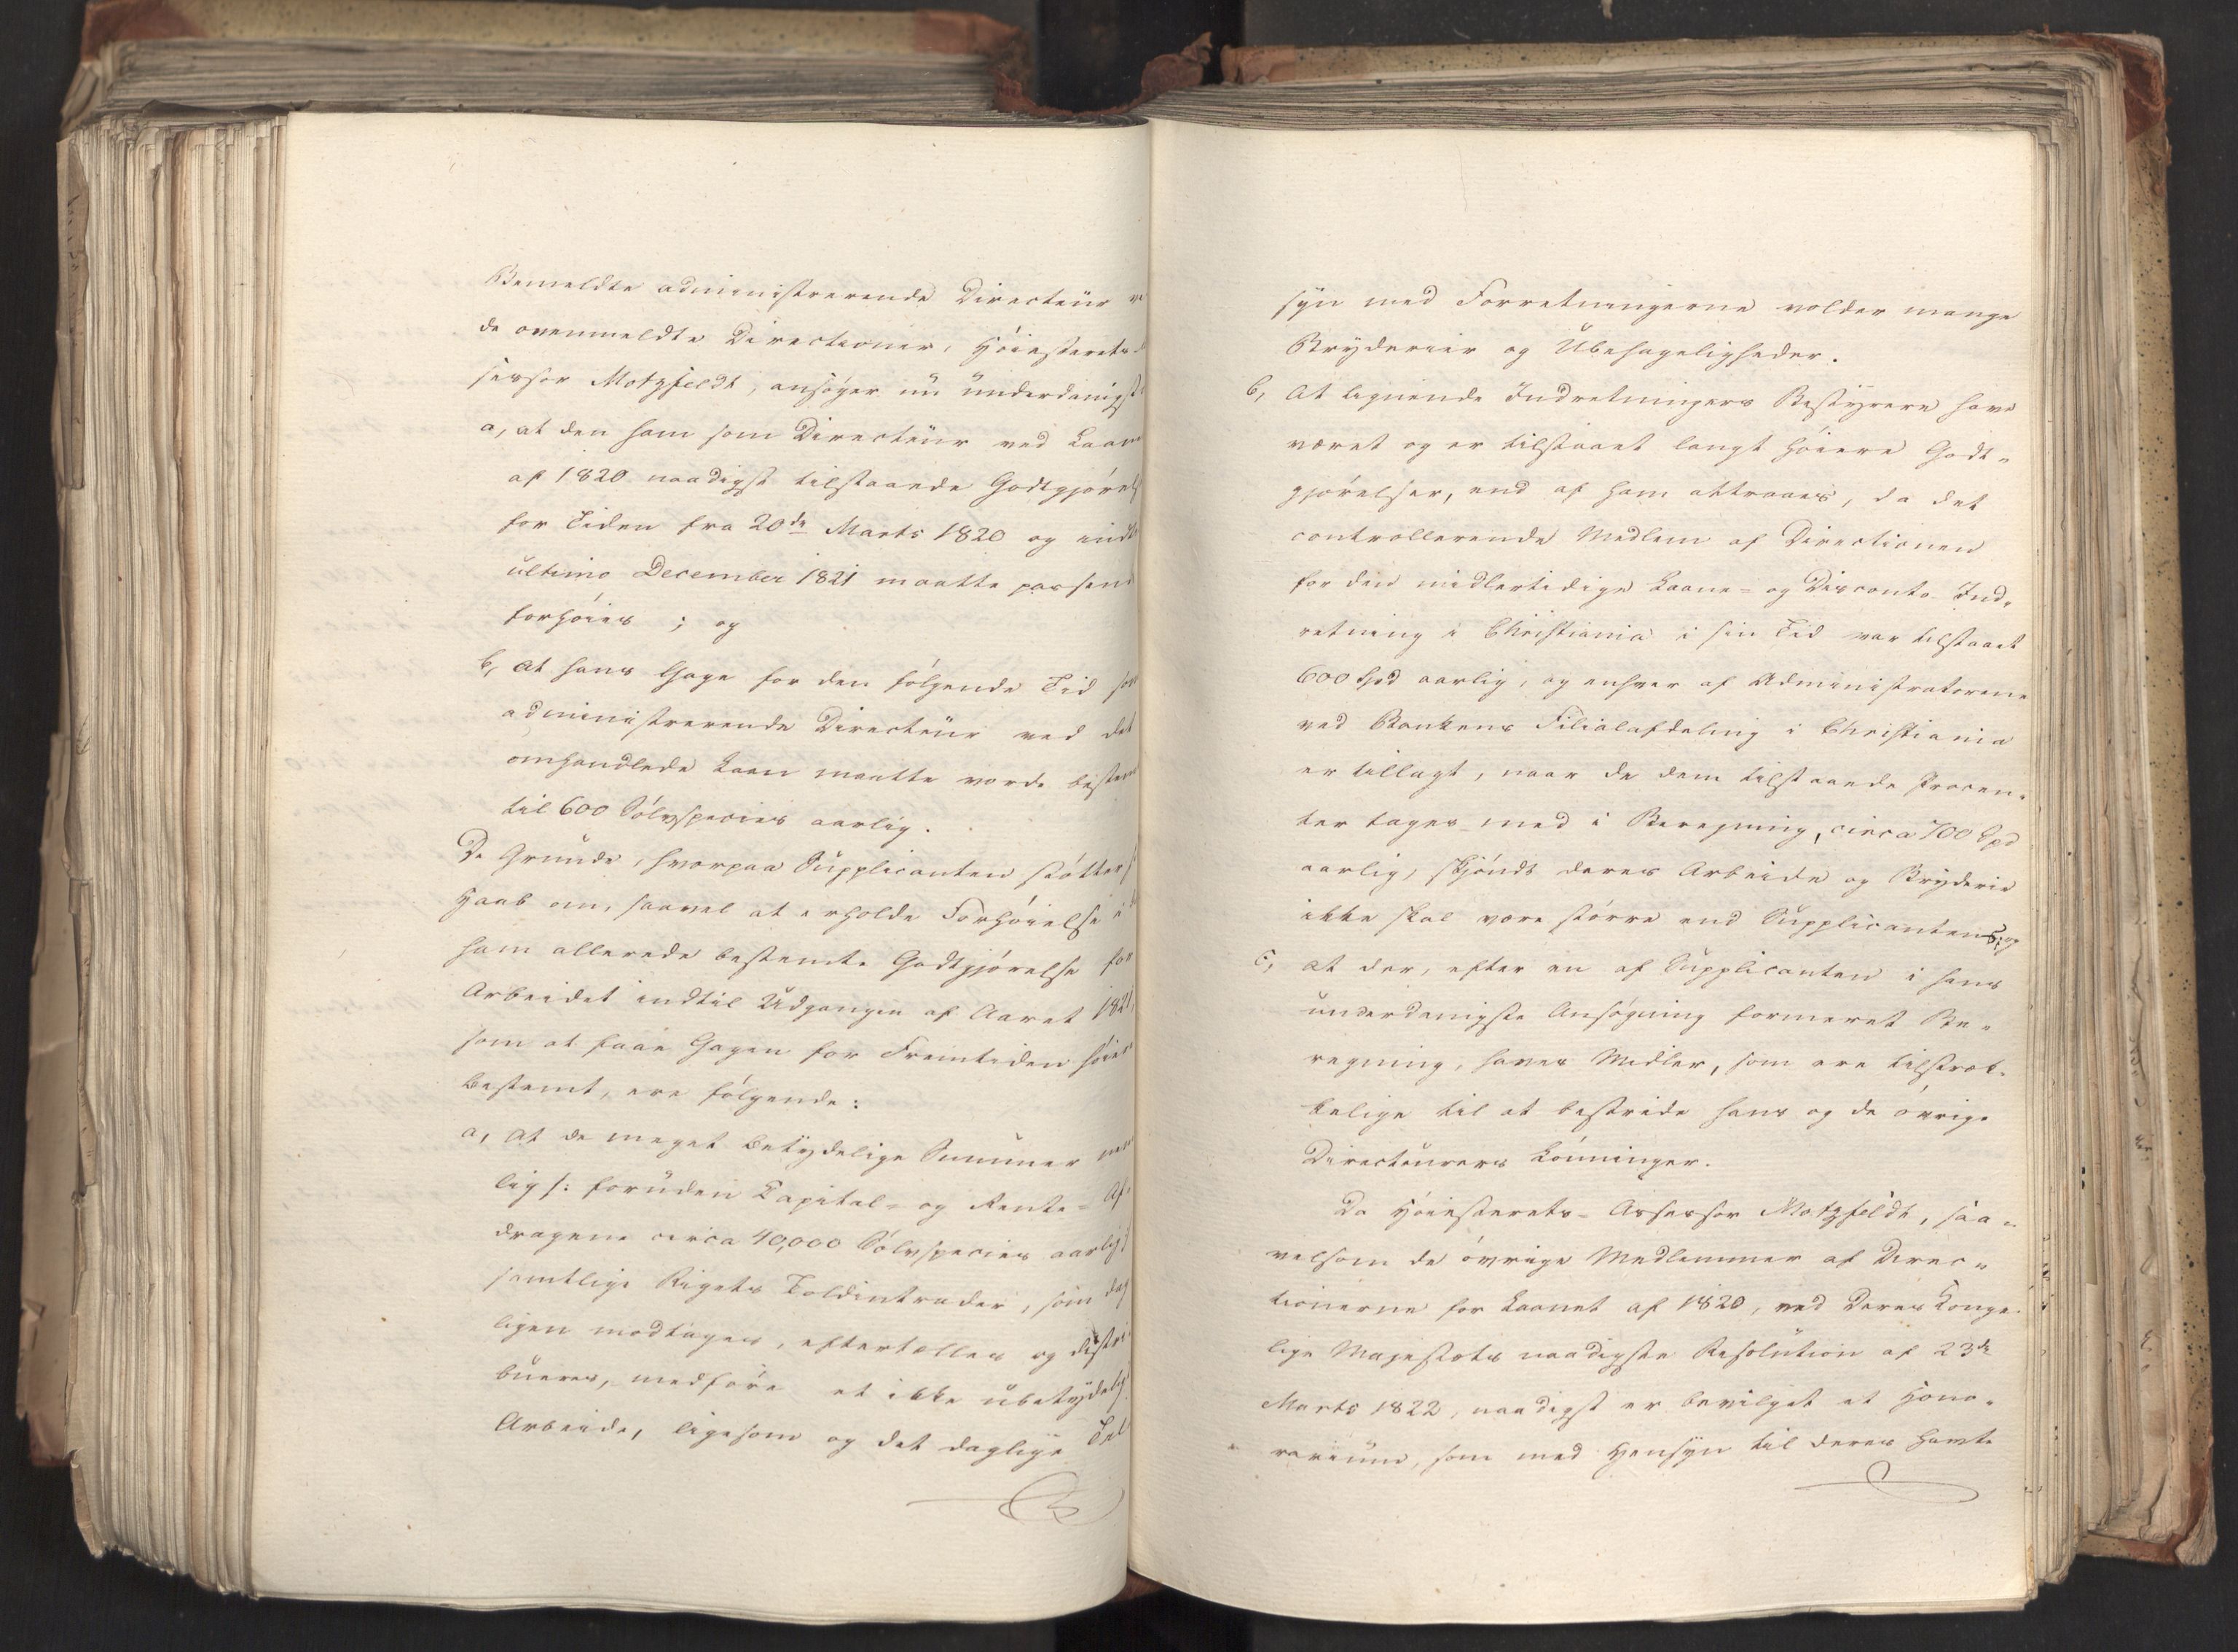 Bemeldte administrerende Directeur
de ovenmeldte Directioner, Høiesterets-
sessor Motzfeldt, ansøger nu underdanigst
a, at den ham som Directeur ved Laanet
af 1820 naadigst tilstaaede Godtgjørelse
for Tiden fra 20de Marts 1820 og indtil
ultimo December 1821 maatte passende
forhøies; og
b, at hans Gage for den følgende Tid som
administrerende Directeur ved det
omhandlede Laan maatte vorde bestemt
til 600 Sølvspecies aarlig.
De Grunde, hvorpaa Supplicanten støtter
Haab om, saavel at erholde Forhøielse i
ham allerede bestemte Godtgjørelse for
Arbeidet indtil Udgangen af Aaret 1821,
som at faae Gagen for Fremtiden høiere
bestemt, ere følgende:
a, at de meget betydelige Summer
lig /: foruden Capital- og Rente-Af-
dragene circa 40,000 Sølvspecies aarlig
samtlige Rigets Toldintrader, som dag
ligen modtages, eftertælles og distri-
bueres, medføre et ikke ubetydeligt
Arbeide, ligesom og det daglige Til
syn med Forretningerne volder mange
Bryderier og Ubehageligheder.
b, At lignende Indretningers Bestyrere have
været og er tilstaaet langt høiere Godt-
gjørelser, end af ham attraaes, da det
controllerende Medlem af Directionen
for den midlertidige Laane- og Disconto Ind-
retning i Christiania i sin Tid var tilstaaet
600 Spd aarlig, og enhver af Administratorerne
ved Bankens Filialafdeling i Christiania
er tillagt, naar de dem tilstaaede Procen-
ter tages med i Beregning, circa 700 Spd
aarlig, skjøndt deres Arbeide og Bryderie
ikke skal være større end Supplicantens; og
c, at der, efter en af Supplicanten i hans
underdanigste Ansøgning formeret Be-
regning, haves Midler, som ere tilstræk-
kelige til at bestride hans og de øvrige
Directeurers Lønninger.
Da Høiesterets-Assessor Motzfeldt, saa-
velsom de øvrige Medlemmer af Direc-
tionerne for Laanet af 1820, ved Deres Konge-
lige Majestæts naadigste Resolution af 23de
Marts 1822, naadigst er bevilget et Hono-
rarium, som med Hensyn til deres havte